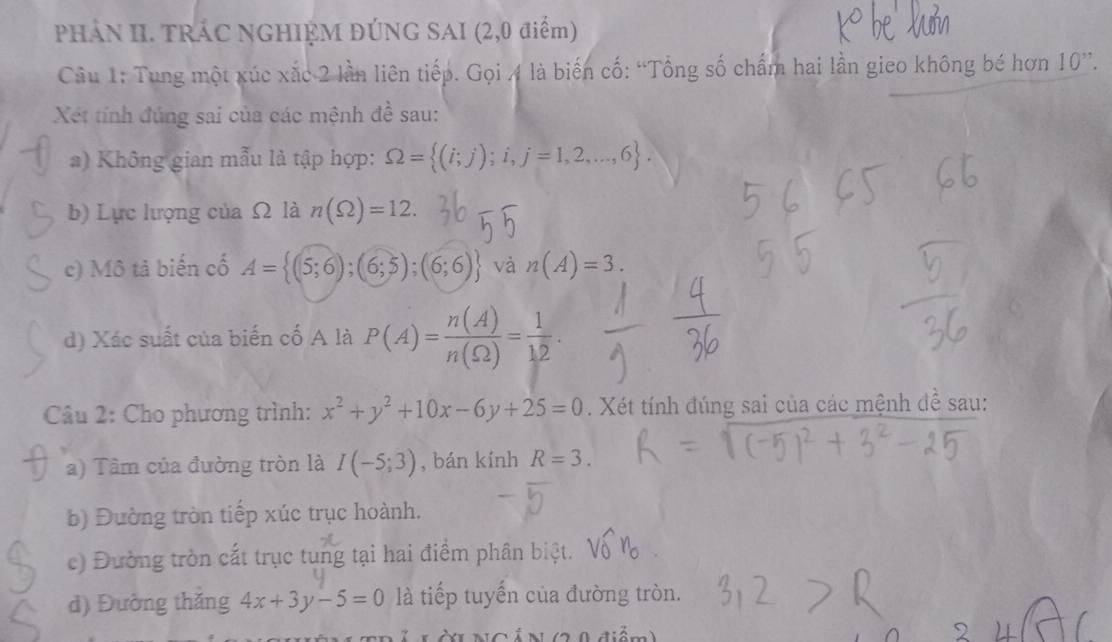 K° bé hơn
PHẦN II. TRẮC NGHIỆM ĐÚNG SAI (2,0 điểm)
Câu 1: Tung một xúc xắc 2 lần liên tiếp. Gọi A là biến cố: “Tổng số chấm hai lần gieo không bé hơn 10”.
Xét tính đúng sai của các mệnh đề sau:
a) Không gian mẫu là tập hợp: Ω = {(i; j); i, j = 1, 2, ..., 6}.
56 65 66
S b) Lực lượng của Ω là n(Ω) = 12. 36 55
S c) Mô tả biến cố A = {(5;6);(6;5);(6;6)} và n(A) = 3. 55
S d) Xác suất của biến cố A là P(A) = n(A)/n(Ω) = 1/12. 1/9 4/36 5/36
Câu 2: Cho phương trình: x² + y² + 10x − 6y + 25 = 0. Xét tính đúng sai của các mệnh đề sau:
a) Tâm của đường tròn là I(−5;3), bán kính R = 3. R = √((-5)² + 3² − 25)
−5
b) Đường tròn tiếp xúc trục hoành.
x
S c) Đường tròn cắt trục tung tại hai điểm phân biệt. Vô no
y
S d) Đường thẳng 4x + 3y − 5 = 0 là tiếp tuyến của đường tròn. 3,2 > R